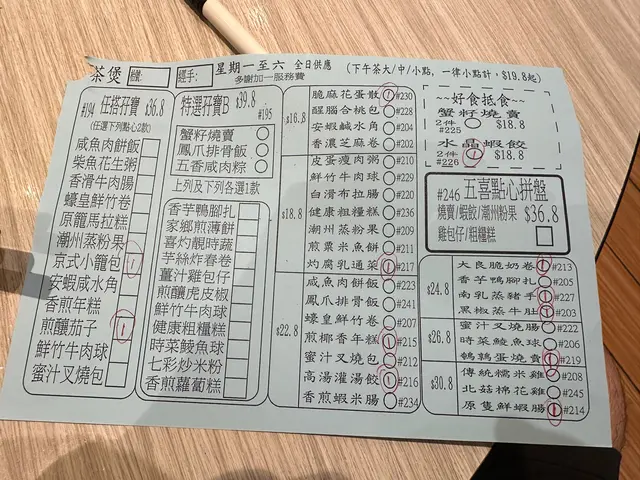 茶煲
經手：
星期一至六 全日供應
多謝加一服務費
(下午茶大/中/小點，一律小點計，$19.8起)
#194 任搭孖寶 $36.8
(任選下列點心2款)
咸魚肉餅飯
柴魚花生粥
香滑牛肉腸
蠔皇鮮竹卷
原籠馬拉糕
潮州蒸粉果
京式小籠包 1
安蝦咸水角
香煎年糕
煎釀茄子 1
鮮竹牛肉球
蜜汁叉燒包
特選孖寶B $39.8
#195
蟹籽燒賣
鳳爪排骨飯
五香咸肉粽
上列及下列各選1款
香芋鴨腳扎
家鄉煎薄餅
喜灼靚時蔬
芋絲炸春卷
薑汁雞包仔
煎釀虎皮椒
鮮竹牛肉球
健康粗糧糕
時菜鯪魚球
七彩炒米粉
香煎蘿蔔糕
$16.8
脆麻花蛋散 1 #230
醒腦合桃包 #228
安蝦鹹水角 #204
香濃芝麻卷 #202
$18.8
皮蛋瘦肉粥 #210
鮮竹牛肉球 #229
白滑布拉腸 #220
健康粗糧糕 #236
潮州蒸粉果 #209
煎粟米魚餅 #211
灼腐乳通菜 1 #217
$22.8
咸魚肉餅飯 #223
鳳爪排骨飯 #241
蠔皇鮮竹卷 #207
煎椰香年糕 1 #215
蜜汁叉燒包 #212
高湯灌湯餃 1 #216
香煎蝦米腸 #234
~好食抵食~
蟹籽燒賣
2件 $18.8
#225
水晶蝦餃
2件 1 $18.8
#226
#246 五喜點心拼盤
燒賣/蝦餃/潮州粉果 $36.8
雞包仔/粗糧糕
$24.8
大良脆奶卷 1 #213
香芋鴨腳扎 #205
南乳蒸豬手 1 #227
黑椒蒸牛肚 1 #203
$26.8
蜜汁叉燒腸 #222
時菜鯪魚球 #206
鵪鶉蛋燒賣 1 #219
$30.8
傳統糯米雞 #208
北菇棉花雞 #245
原隻鮮蝦腸 1 #214